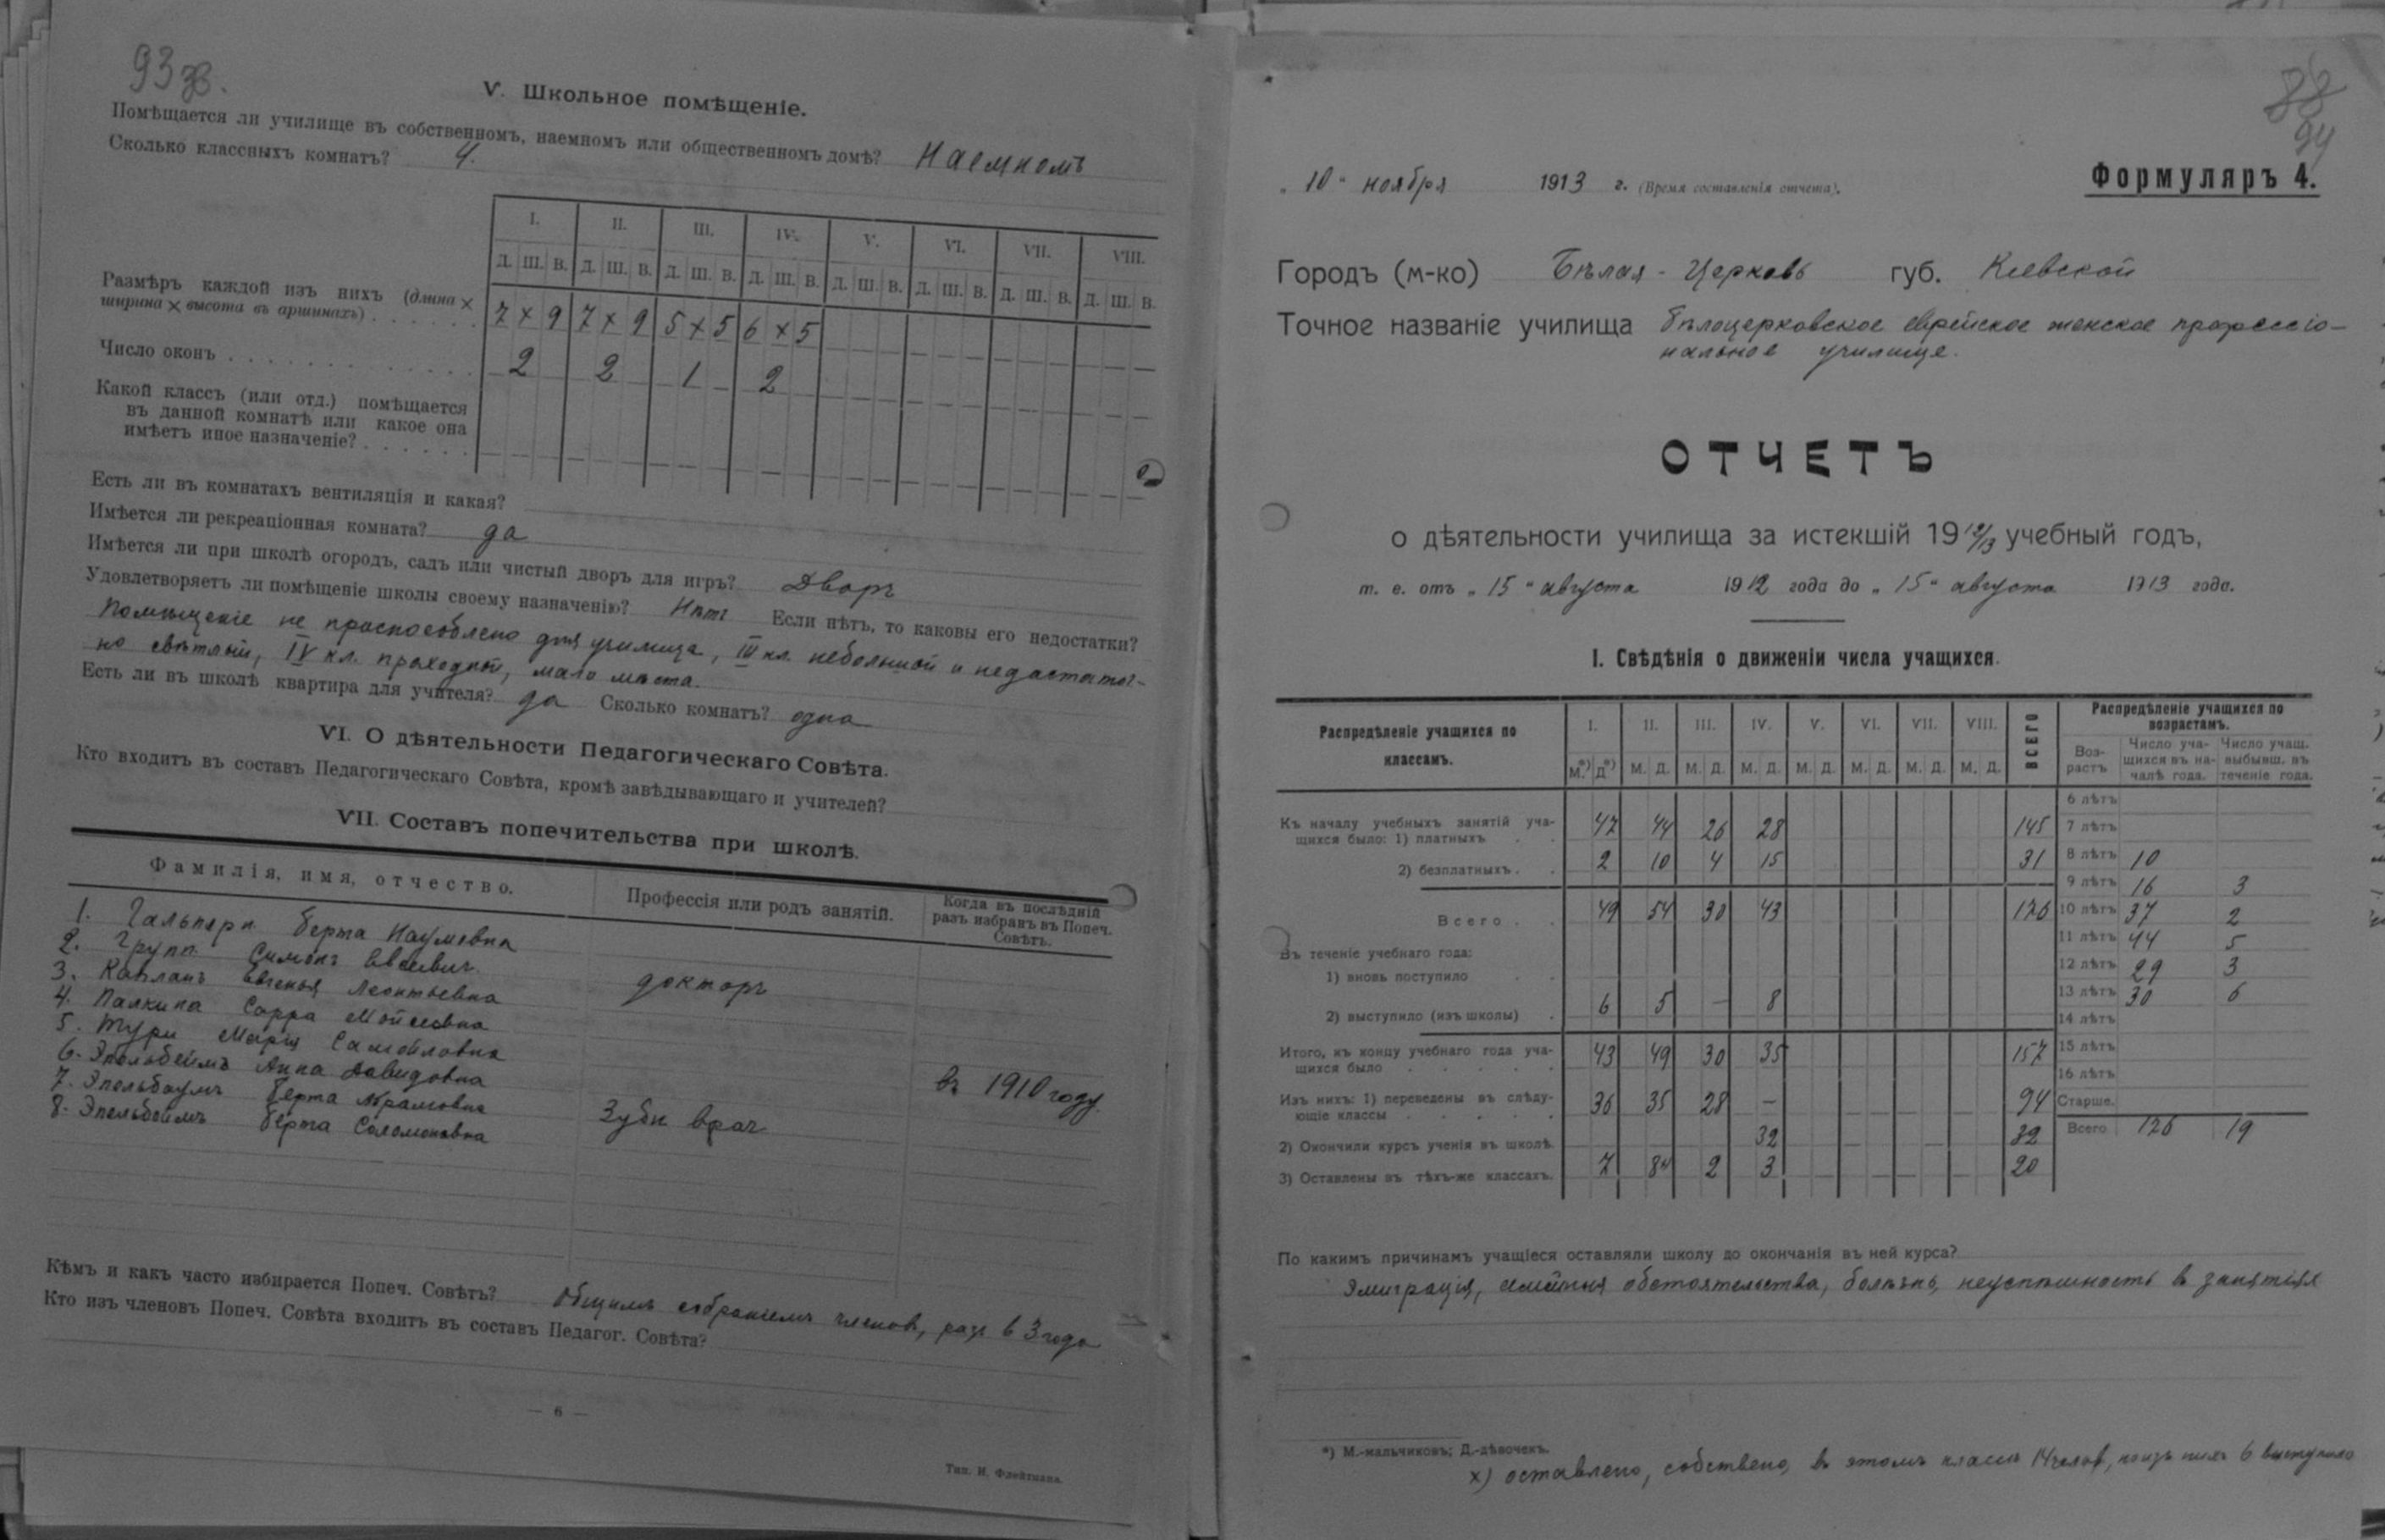 93 зв.
V. Школьное помѣщеніе.
Помѣщается ли училище въ собственномъ, наемномъ или общественномъ домѣ? Наемномъ
Сколько классныхъ комнатъ? 4.
I. II. III. IV. V. VI. VII. VIII.
Д. Ш. В. Д. Ш. В. Д. Ш. В. Д. Ш. В. Д. Ш. В. Д. Ш. В. Д. Ш. В. Д. Ш. В.
Размѣръ каждой изъ нихъ (длина ×
ширина × высота въ аршинахъ) 7 × 9 7 × 9 5 × 5 6 × 5
Число оконъ 2 2 1 2
Какой классъ (или отд.) помѣщается
въ данной комнатѣ или какое она
имѣетъ иное назначеніе?
Есть ли въ комнатахъ вентиляція и какая?
Имѣется ли рекреаціонная комната? да
Имѣется ли при школѣ огородъ, садъ или чистый дворъ для игръ? Дворъ
Удовлетворяетъ ли помѣщеніе школы своему назначенію? Нѣтъ Если нѣтъ, то каковы его недостатки?
Помѣщеніе не приспособлено для училища, III кл. небольшой и недостаточ-
но свѣтлый, IV кл. проходной, мало мѣста.
Есть ли въ школѣ квартира для учителя? да Сколько комнатъ? одна
VI. О дѣятельности Педагогическаго Совѣта.
Кто входитъ въ составъ Педагогическаго Совѣта, кромѣ завѣдывающаго и учителей?
VII. Составъ попечительства при школѣ.
Фамилія, имя, отчество. Профессія или родъ занятій. Когда въ послѣдній
разъ избранъ въ Попеч.
Совѣтъ.
1. Гальперн Берта Наумовна
2. Группъ Симонъ Евсѣевич докторъ
3. Капланъ Евгенья Леонтьевна
4. Палкина Сарра Мойсеевна
5. Тури Марія Самойловна
6. Эпельбеймъ Анна Давидовна
7. Эпельбаумъ Берта Абрамовна въ 1910 году.
8. Эпельбеймъ Берта Соломоновна Зубн врач
Кѣмъ и какъ часто избирается Попеч. Совѣтъ? Общимъ собраніемъ членов, раз в 3 года
Кто изъ членовъ Попеч. Совѣта входитъ въ составъ Педагог. Совѣта?
— 6 —
Тип. И. Флейтмана.
88
94
Формуляръ 4.
„10“ ноября 1913 г. (Время составленія отчета).
Городъ (м-ко) Бѣлая-Церковь губ. Кіевской
Точное названіе училища Бѣлоцерковское еврейское женское профессіо-
нальное училище.
ОТЧЕТЪ
о дѣятельности училища за истекшій 1912/13 учебный годъ,
т. е. отъ „15“ августа 1912 года до „15“ августа 1913 года.
I. Свѣдѣнія о движеніи числа учащихся.
Распредѣленіе учащихся по
классамъ.
I. II. III. IV. V. VI. VII. VIII. ВСЕГО
М.*) Д*) М. Д. М. Д. М. Д. М. Д. М. Д. М. Д. М. Д.
Къ началу учебныхъ занятій уча-
щихся было: 1) платныхъ 47 44 26 28 145
2) безплатныхъ 2 10 4 15 31
Всего 49 54 30 43 176
Въ теченіе учебнаго года:
1) вновь поступило
2) выступило (изъ школы) 6 5 — 8
Итого, къ концу учебнаго года уча-
щихся было 43 49 30 35 157
Изъ нихъ: 1) переведены въ слѣду-
ющіе классы 36 35 28 — 94
2) Окончили курсъ ученія въ школѣ 32 32
3) Оставлены въ тѣхъ-же классахъ. 7 8 x) 2 3 20
Распредѣленіе учащихся по
возрастамъ.
Воз-
растъ Число уча-
щихся въ на-
чалѣ года. Число учащ.
выбывш. въ
теченіе года.
6 лѣтъ
7 лѣтъ
8 лѣтъ 10
9 лѣтъ 16 3
10 лѣтъ 37 2
11 лѣтъ 44 5
12 лѣтъ 29 3
13 лѣтъ 30 6
14 лѣтъ
15 лѣтъ
16 лѣтъ
Старше.
Всего 126 19
По какимъ причинамъ учащіеся оставляли школу до окончанія въ ней курса?
Эмиграція, семейныя обстоятельства, болѣзнь, неуспѣшность в занятіях
*) М.-мальчиковъ; Д.-дѣвочекъ.
x) оставлено, собствено, в этомъ классѣ 14 челов, но изъ них 6 выступило